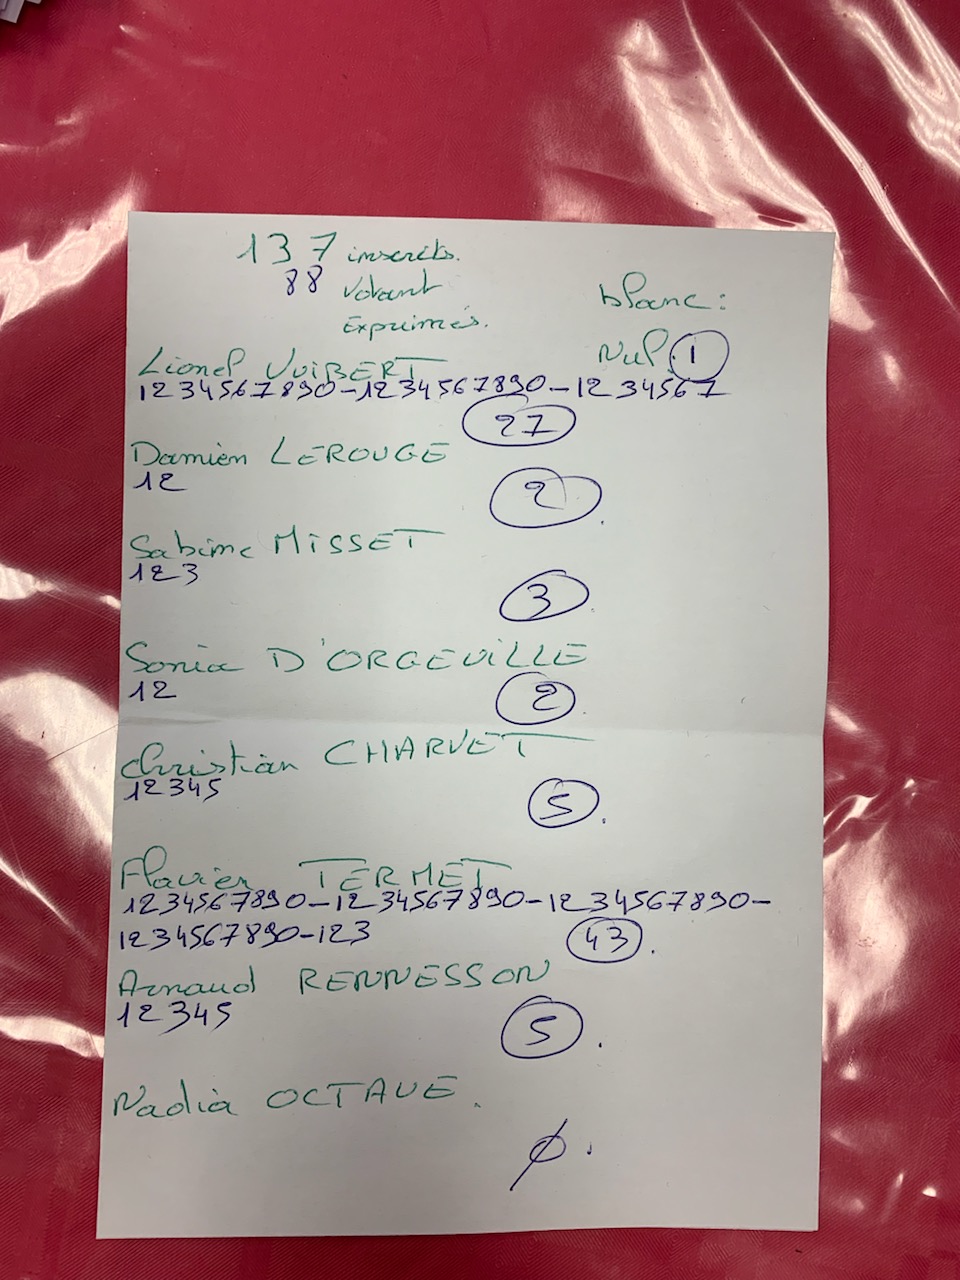 137 inscrits.
88 Votant
Exprimés.
blanc :
Nul. 1
Lionel VUIBERT
1234567890-1234567890-1234567
27
Damien LEROUGE
12
2.
Sabine MISSET
123
3.
Sonia D'ORGEVILLE
12
2.
Christian CHARVET
12345
5.
Flavien TERMET
1234567890-1234567890-1234567890-
1234567890-123
43.
Arnaud RENNESSON
12345
5.
Nadia OCTAVE.
∅.